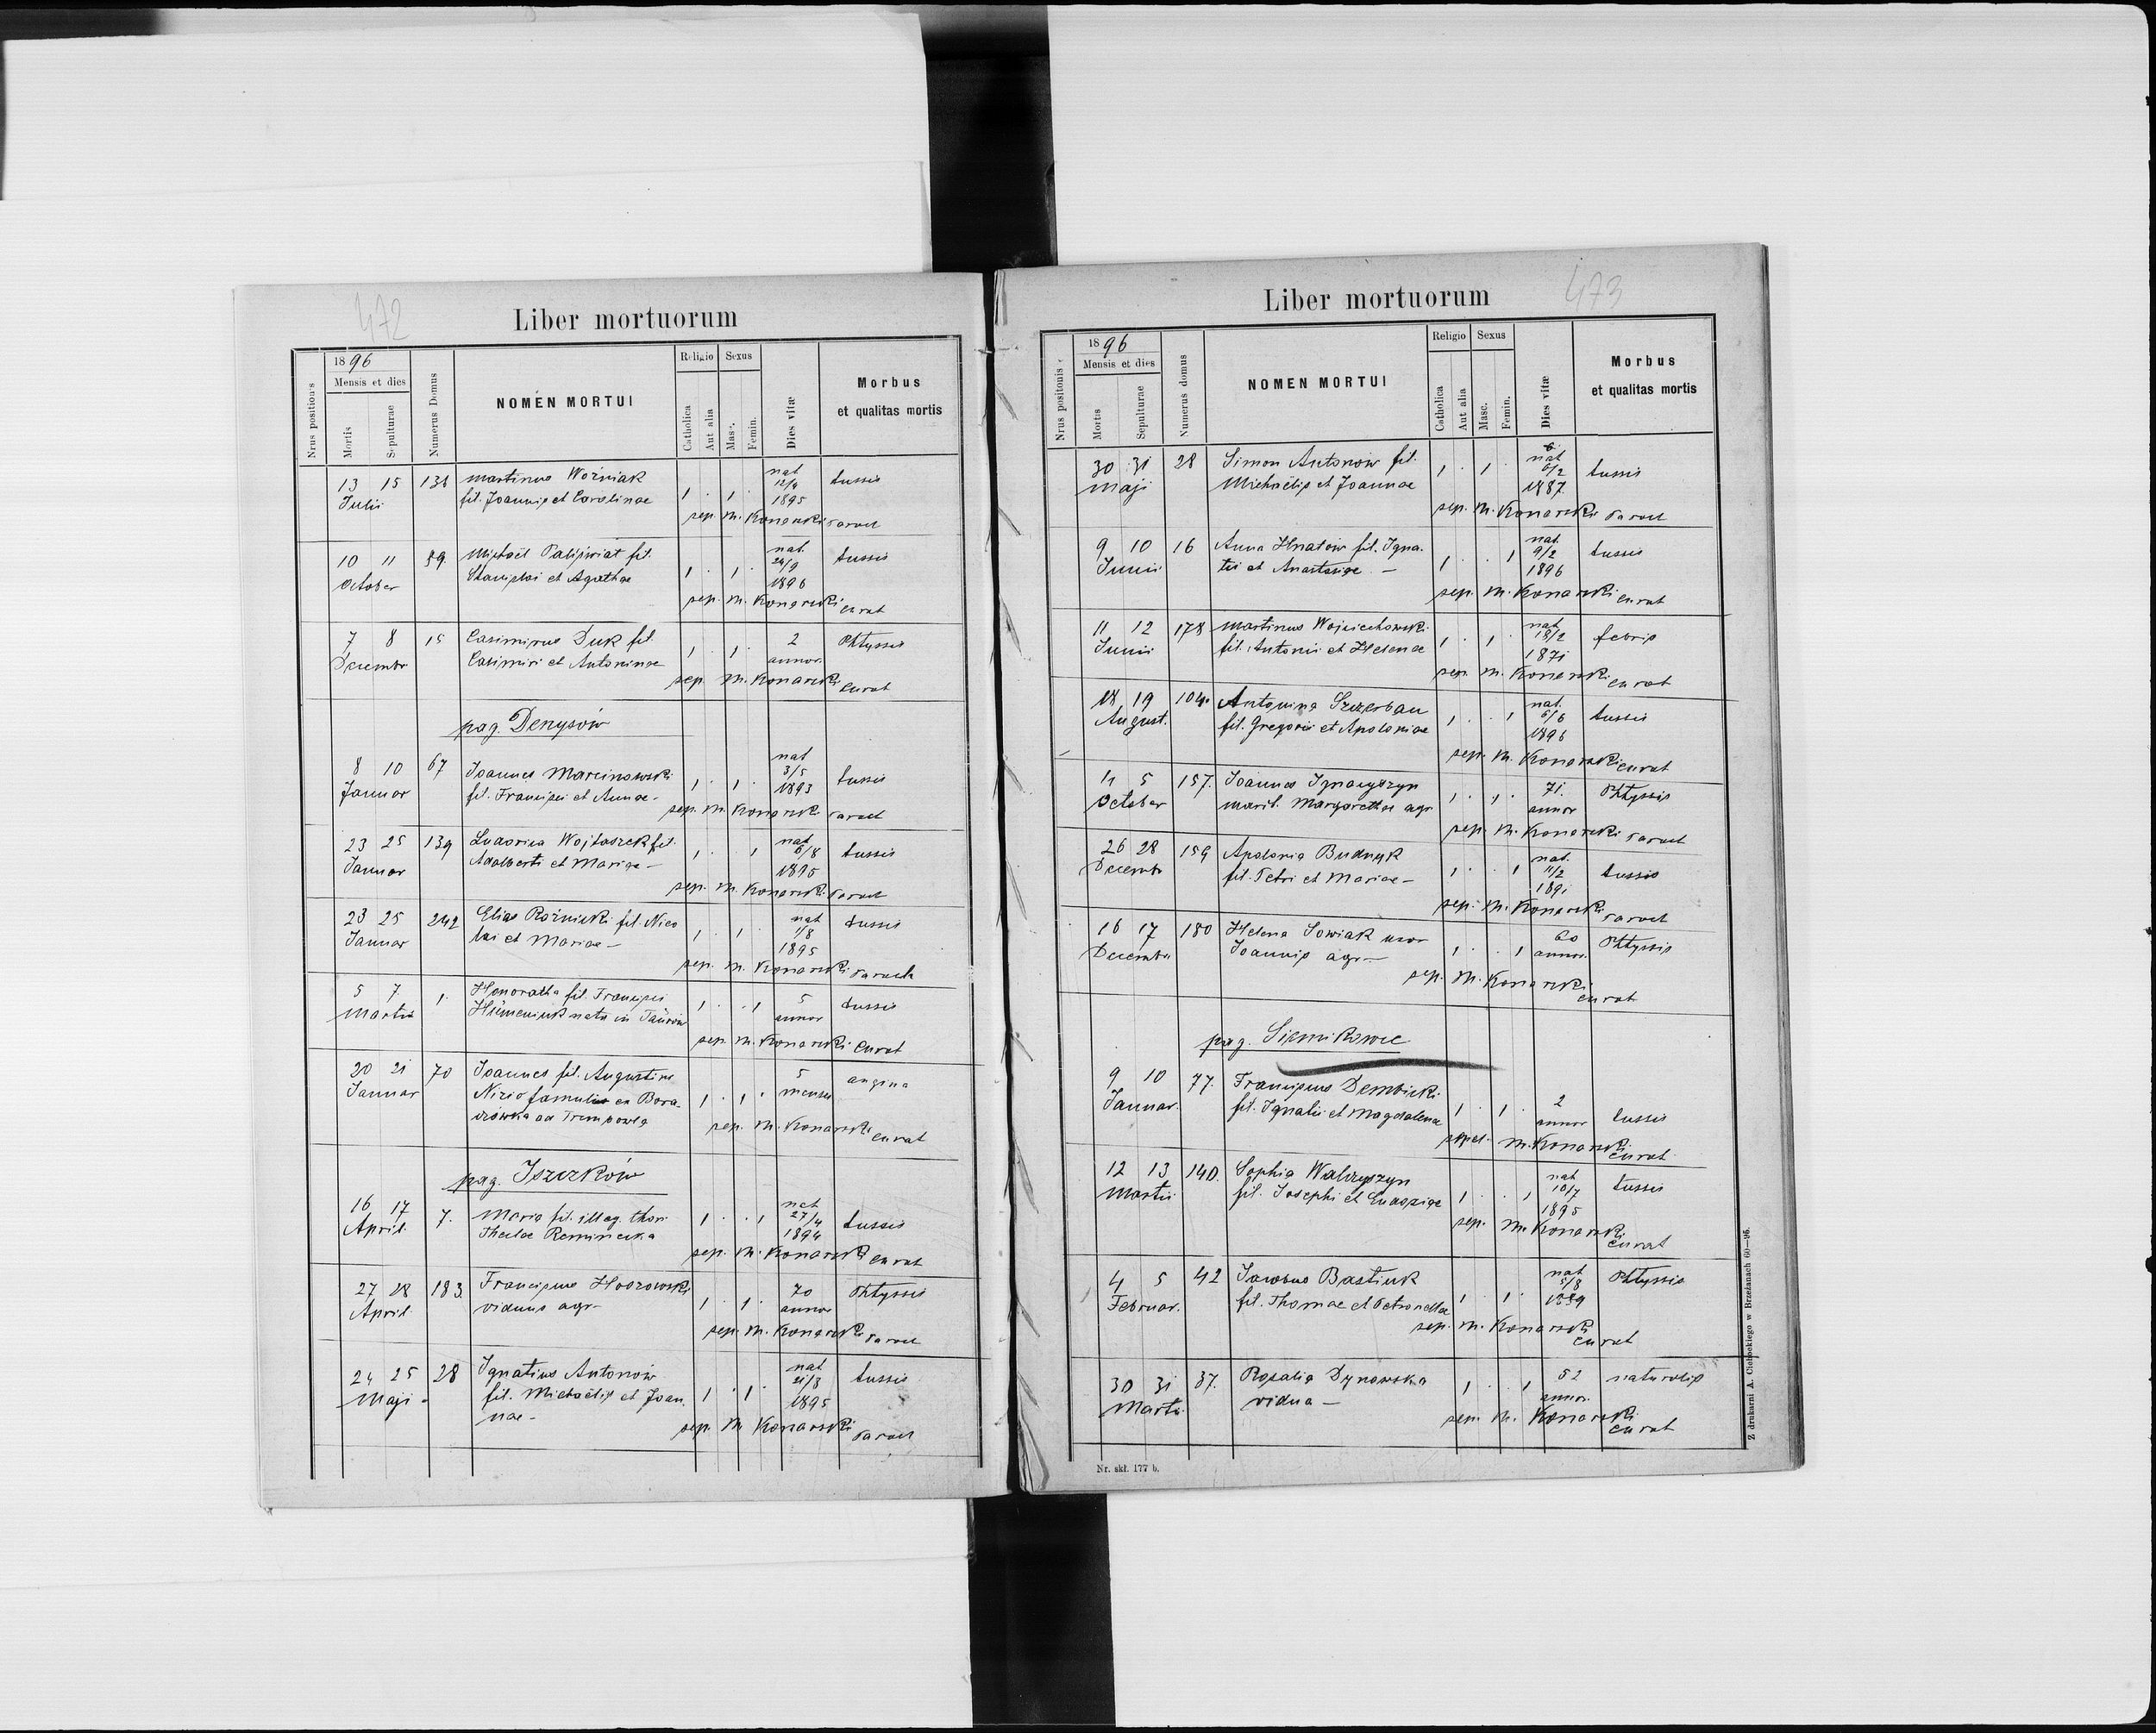 472
Liber mortuorum
Nrus positionis
1896
Mensis et dies
Mortis
Sepulturae
Numerus Domus
NOMEN MORTUI
Religio
Catholica
Aut alia
Sexus
Masc.
Femin.
Dies vitæ
Morbus
et qualitas mortis
13 15 136 Martinus Woźniak nat tussis
Julii fil. Joannis et Carolinae 1 . 1 . 12/9 1895
sep. M. Konarski paroch
10 11 89. Michael fil. nat. tussis
October Stanislai et Agathae 1 . 1 . 24/9 1896
sep. M. Konarski curat
7 8 15 Casimirus Duk fil. 2 Phtyssis
Decembr Casimiri et Antoninae 1 . 1 . annor.
sep. M. Konarski curat
pag. Denysów
8 10 67 Joannes Marcinowski nat 3/5 tussis
Januar fil. Francisci et Annae - 1 . 1 . 1893
sep. M. Konarski paroch
23 25 139 Ludovica Wojtaszek fil. nat 6/8 tussis
Januar Adalberti et Mariae - 1 . . 1 1895
sep. M. Konarski paroch
23 25 242 Elias Rożnicki fil. Nico nat 1/8 tussis
Januar lai et Mariae - 1 . 1 . 1895
sep. M. Konarski paroch
5 7 1. Honoratha fil. Francisci 5 tussis
Martii nata in 1 . . 1 annor
sep. M. Konarski curat
20 21 70 Joannes fil. Augustini 5 angina
Januar famulus ex Bora 1 . 1 . menses
ad Trembowla
sep. M. Konarski curat
pag. Iszczków
16 17 7. Maria fil. illeg. thori nat 27/4 tussis
April. Theclae 1 . . 1 1894
sep. M. Konarski curat
27 28 183 Franciscus 70 Phtyssis
April viduus agr- 1 . 1 . annor
sep. M. Konarski paroch
24 25 28 Ignatius Antonów nat 21/3 tussis
Maji - fil. Michaelis et Joan 1 . 1 . 1895
nae -
sep. M. Konarski paroch
473
Liber mortuorum
Nrus positonis
1896
Mensis et dies
Mortis
Sepulturae
Numerus domus
NOMEN MORTUI
Religio
Catholica
Aut alia
Sexus
Masc.
Femin.
Dies vitæ
Morbus
et qualitas mortis
30 31 28 Simon Antonów fil. nat 6/2 tussis
Maji Michaelis et Joannae 1 . 1 . 1887
sep. M. Konarski paroch
9 10 16 Anna Hnatów fil. Igna- nat. 9/2 tussis
Junii tii et Anastasiae - 1 . . 1 1896
sep. M. Konarski curat
11 12 178 Martinus Wojciechowski nat 18/2 febris
Junii fil. Antonii et Helenae 1 . 1 . 1871
sep. M. Konarski curat
18 19 104. Antonina Szczerban nat. 6/6 tussis
August. fil. Gregorii et Apoloniae 1 . . 1 1896
sep. M. Konarski curat
4 5 157. Joannes Ignacyszyn 71. Phtyssis
October marit. Margarethae agr 1 . 1 . annor
sep. M. Konarski paroch
26 28 159 Apolonia Budnyk nat. 11/2 tussis
Decembr fil. Petri et Mariae - 1 . . 1 1891
sep. M. Konarski paroch
16 17 180 Helena Sowiak uxor 60 Phtyssis
Decembr Joannis agr- 1 . . 1 annor.
sep. M. Konarski curat
pag. Siemikowce
9 10 77. Franciscus Dembicki 2 tussis
Januar. fil. Ignatii et Magdalenae 1 . 1 . annor
sepel. M. Konarski curat
12 13 140. Sophia Walczyszyn nat 10/7 tussis
Martii fil. Josephi et Eudoxiae 1 . . 1 1895
sep. M. Konarski curat
4 5 42 Jacobus Bastiuk nat 5/8 Phtyssis
Februar. fil. Thomae et Petronellae 1 . 1 . 1889
sep. M. Konarski curat
30 31 37. Rosalia Dynowska 52 naturalis
Marti. vidua - 1 . . 1 annor.
sep. M. Konarski curat
Nr. skł. 177 b.
Z drukarni A. Cichockiego w Brzeżanach 60—96.